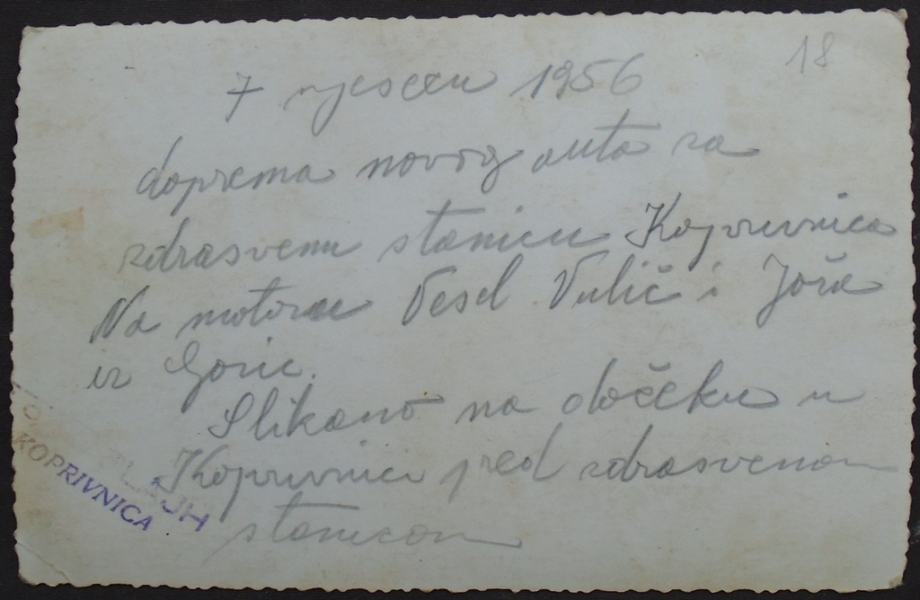 18
7 mjesecu 1956
doprema novog auta za
zdrasvenu stanicu Koprivnica
Na motorae Vesel Vulić i Joža
iz Goric.
Slikano na dočeku u
Koprivnici pred zdrasvenom
stanicom
KOPRIVNICA